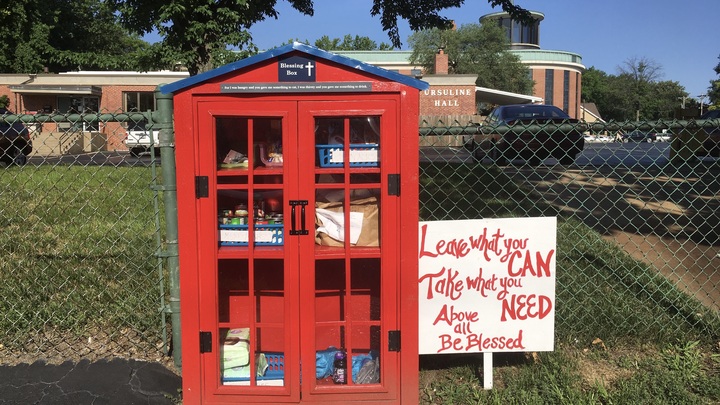 Blessing
Box
For I was hungry and you gave me something to eat, I was thirsty and you gave me something to drink.
URSULINE
HALL
Leave what you
CAN
Take what you
NEED
Above
all
Be Blessed